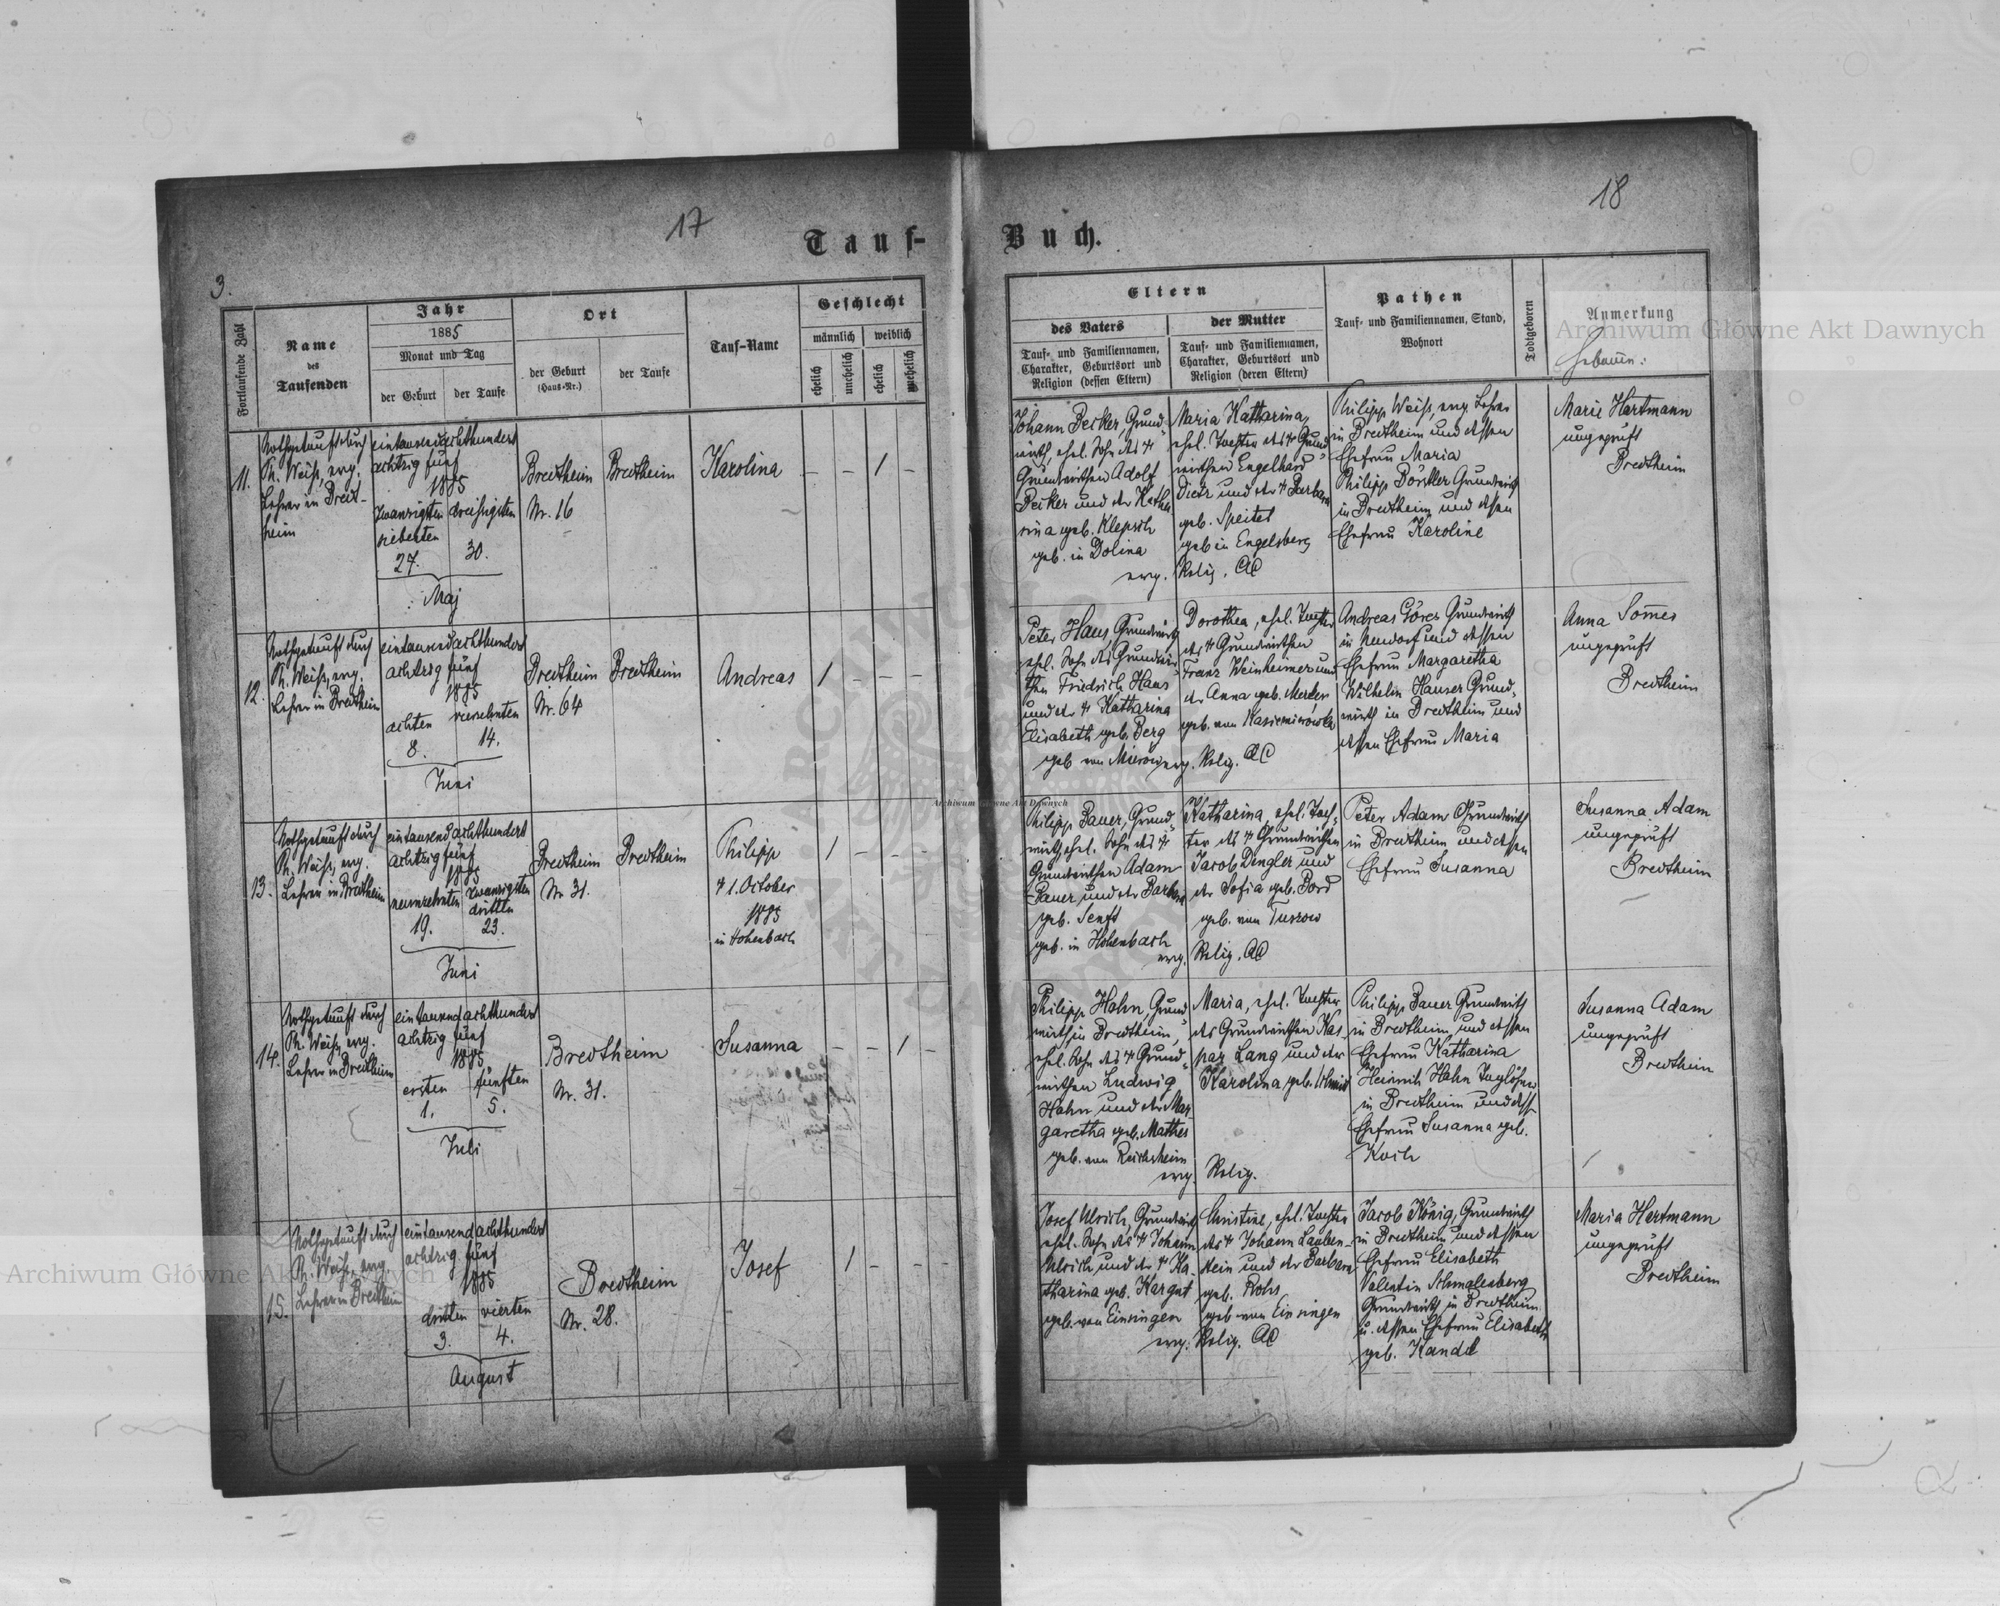 17
18
Tauf-
Buch.
3.
Fortlaufende Zahl
Name
des
Taufenden
Jahr
1885
Monat und Tag
der Geburt
der Taufe
Ort
der Geburt
(Haus-Nr.)
der Taufe
Tauf-Name
Geschlecht
männlich
weiblich
ehelich
unehelich
ehelich
unehelich
Eltern
des Vaters
Tauf- und Familiennamen,
Charakter, Geburtsort und
Religion (dessen Eltern)
der Mutter
Tauf- und Familiennamen,
Charakter, Geburtsort und
Religion (deren Eltern)
Pathen
Tauf- und Familiennamen, Stand,
Wohnort
Todtgeboren
Anmerkung
Hebamm:
11.
Nothgetauft durch
Ph. Weiss, evg.
Lehrer in Bredt-
heim
eintausendachthundert
achtzig fünf
1885
zwanzigsten dreissigsten
siebenten
27. 30.
Maj
Bredtheim
Nr. 16
Bredtheim
Karolina
– – 1 –
Johann Becker, Grund-
wirth, ehel. Sohn des †
Grundwirthen Adolf
Becker und der Katha
rina geb. Klepsch
geb. in Dolina
evg.
Maria Katharina,
ehel. Tochter des † Grund-
wirthen Engelhard
Dietz und der † Barbara
geb. Speitel
geb in Engelsberg
Relig. AC
Philipp Weiss, evg. Lehrer
in Bredtheim und dessen
Ehefrau Maria
Philipp Börstler Grundwirth
in Bredtheim und dessen
Ehefrau Karoline
Marie Hartmann
ungeprüft
Bredtheim
12.
Nothgetauft durch
Ph. Weiss, evg.
Lehrer in Bredtheim
eintausendachthundert
achtzig fünf
1885
achten vierzehnten
8. 14.
Juni
Bredtheim
Nr. 64
Bredtheim
Andreas
1 – – –
Peter Haus, Grundwirth
ehel. Sohn des Grundwir
then Friedrich Haus
und der † Katharina
Elisabeth geb. Berg
geb von Mierów evg.
Dorothea, ehel. Tochter
des † Grundwirthen
Franz Weinheimer und
der Anna geb. Merker
geb. von Kasimirowka
Relig. AC
Andreas Göres Grundwirth
in Neudorf und dessen
Ehefrau Margaretha
Wilhelm Hauser Grund-
wirth in Bredtheim und
dessen Ehefrau Maria
Anna Som̄er
ungeprüft
Bredtheim
13.
Nothgetauft durch
Ph. Weiss, evg.
Lehrer in Bredtheim
eintausendachthundert
achtzig fünf
1885
neunzehnten zwanzigsten
dritten
19. 23.
Juni
Bredtheim
Nr. 31.
Bredtheim
Philipp
† 1. October
1885
in Hohenbach
1 – – –
Philipp Bauer, Grund-
wirth, ehel. Sohn des †
Grundwirthen Adam
Bauer und der Barbara
geb. Senft
geb. in Hohenbach
evg.
Katharina, ehel. Toch-
ter des † Grundwirthen
Jacob Dengler und
der Sofia geb. Bord
geb. von Tuszow
Relig. AC
Peter Adam Grundwirth
in Bredtheim und dessen
Ehefrau Susanna
Susanna Adam
ungeprüft
Bredtheim
14.
Nothgetauft durch
Ph. Weiss, evg.
Lehrer in Bredtheim
eintausendachthundert
achtzig fünf
1885
ersten fünften
1. 5.
Juli
Bredtheim
Nr. 31.
Susanna
– – 1 –
Philipp Hahn, Grund
wirth in Bredtheim,
ehel. Sohn des † Grund-
wirthen Ludwig
Hahn und der Mar-
garetha geb. Mathes
geb. von Reichsheim
evg.
Maria, ehel. Tochter
des Grundwirthen Kas-
par Lang und der
Karolina geb.
Relig.
Philipp Bauer Grundwirth
in Bredtheim und dessen
Ehefrau Katharina
Heinrich Hahn Taglöhner
in Bredtheim und dess.
Ehefrau Susanna geb.
Koch
Susanna Adam
ungeprüft
Bredtheim
15.
Nothgetauft durch
Ph. Weiss, evg.
Lehrer in Bredtheim
eintausendachthundert
achtzig fünf
1885
dritten vierten
3. 4.
August
Bredtheim
Nr. 28.
Josef
1 – – –
Josef Ulrich, Grundwirth
ehel. Sohn des † Johann
Ulrich und der † Ka
tharina geb. Kargut
geb. von Einsingen
evg.
Christine, ehel. Tochter
des † Johann Lauben-
stein und der Barbara
geb. Rohs
geb von Einsingen
Relig. AC
Jacob König, Grundwirth
in Bredtheim und dessen
Ehefrau Elisabeth
Valentin Schmalenberg
Grundwirth in Bredtheim
u. dessen Ehefrau Elisabeth
geb. Kandel
Maria Hertmann
ungeprüft
Bredtheim
Archiwum Główne Akt Dawnych
Archiwum Główne Akt Dawnych
Archiwum Główne Akt Dawnych